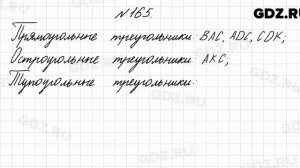 GDZ.RU
№165.
Прямоугольные треугольники: BAC, ADC, CDK;
Остроугольные треугольники: AKC;
Тупоугольные треугольники: